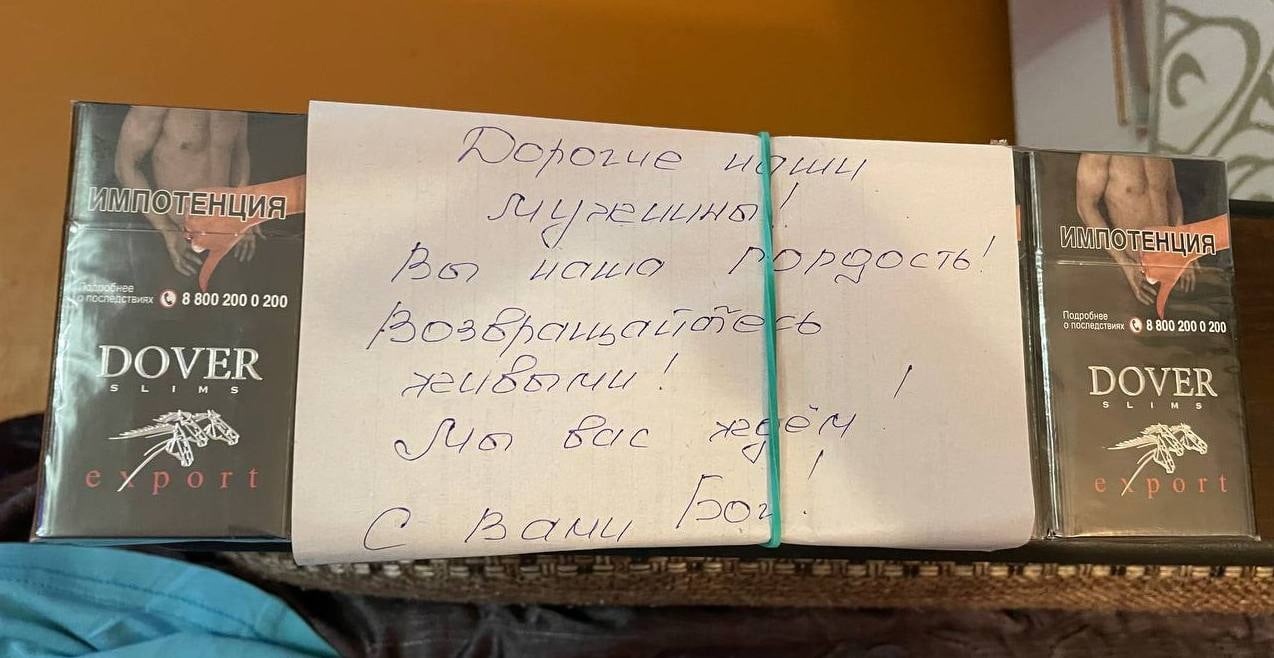 ИМПОТЕНЦИЯ
Подробнее
о последствиях 8 800 200 0 200
DOVER
SLIMS
export
Дорогие наши
мужчины!
Вы наша гордость!
Возвращайтесь
живыми!
Мы вас ждём!
С Вами Бог!
ИМПОТЕНЦИЯ
Подробнее
о последствиях 8 800 200 0 200
DOVER
SLIMS
export